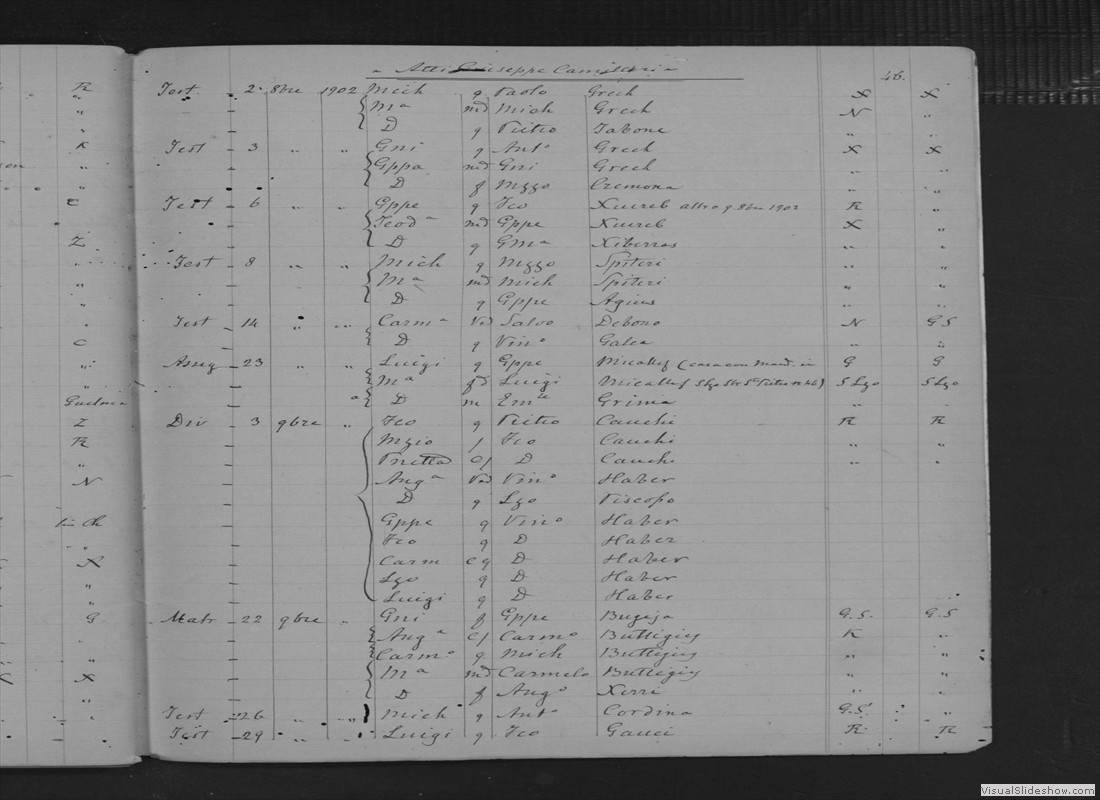 Atti Giuseppe Camilleri 46.
Test. 2 8bre 1902 Mich q Paolo Grech X X
Ma md Mich Grech N "
D q Pietro Tabone " "
Test 3 " " Gni q Anto Grech X X
Gppa md Gni Grech " "
D f Mzzo Cremona " "
Test 6 " " Gppe q Fco Xuereb altro 9 8bre 1902 R "
Teoda md Gppe Xuereb X "
D q Gma Xiberras " "
Test 8 " " Mich q Mzzo Spiteri " "
Ma md Mich Spiteri " "
D q Gppe Agius " "
Test 14 " " Carma Ved Salvo Debono N G S
D q Vino Galea " "
Asseg 23 " " Luigi q Gppe Micallef (casa con mand. in G G
Ma fd Luigi Micallef S Lgo S Lgo
D m Emle Grima " "
Div 3 9bre " Fco q Pietro Cauchi R R
Mzio f Fco Cauchi " "
C/ D Cauchi " "
Anga Ved Vino Haber
D q Lgo Piscopo
Gppe q Vino Haber
Fco q D Haber
Carm C q D Haber
Lgo q D Haber
Luigi q D Haber
Matr 22 9bre " Gni f Gppe Bugeja G.S. G.S
Anga C/ Carmo Buttigieg R "
Carmo q Mich Buttigieg " "
Ma md Carmelo Buttigieg " "
D f Ango Xerri " "
Test 26 " " Mich q Anto Cordina G.S. "
Test 29 Luigi q Fco Gauci R R
R
"
"
K
"
"
Z
"
"
C
"
Z
R
"
N
R
"
G
"
X
"
VisualSlideshow.com